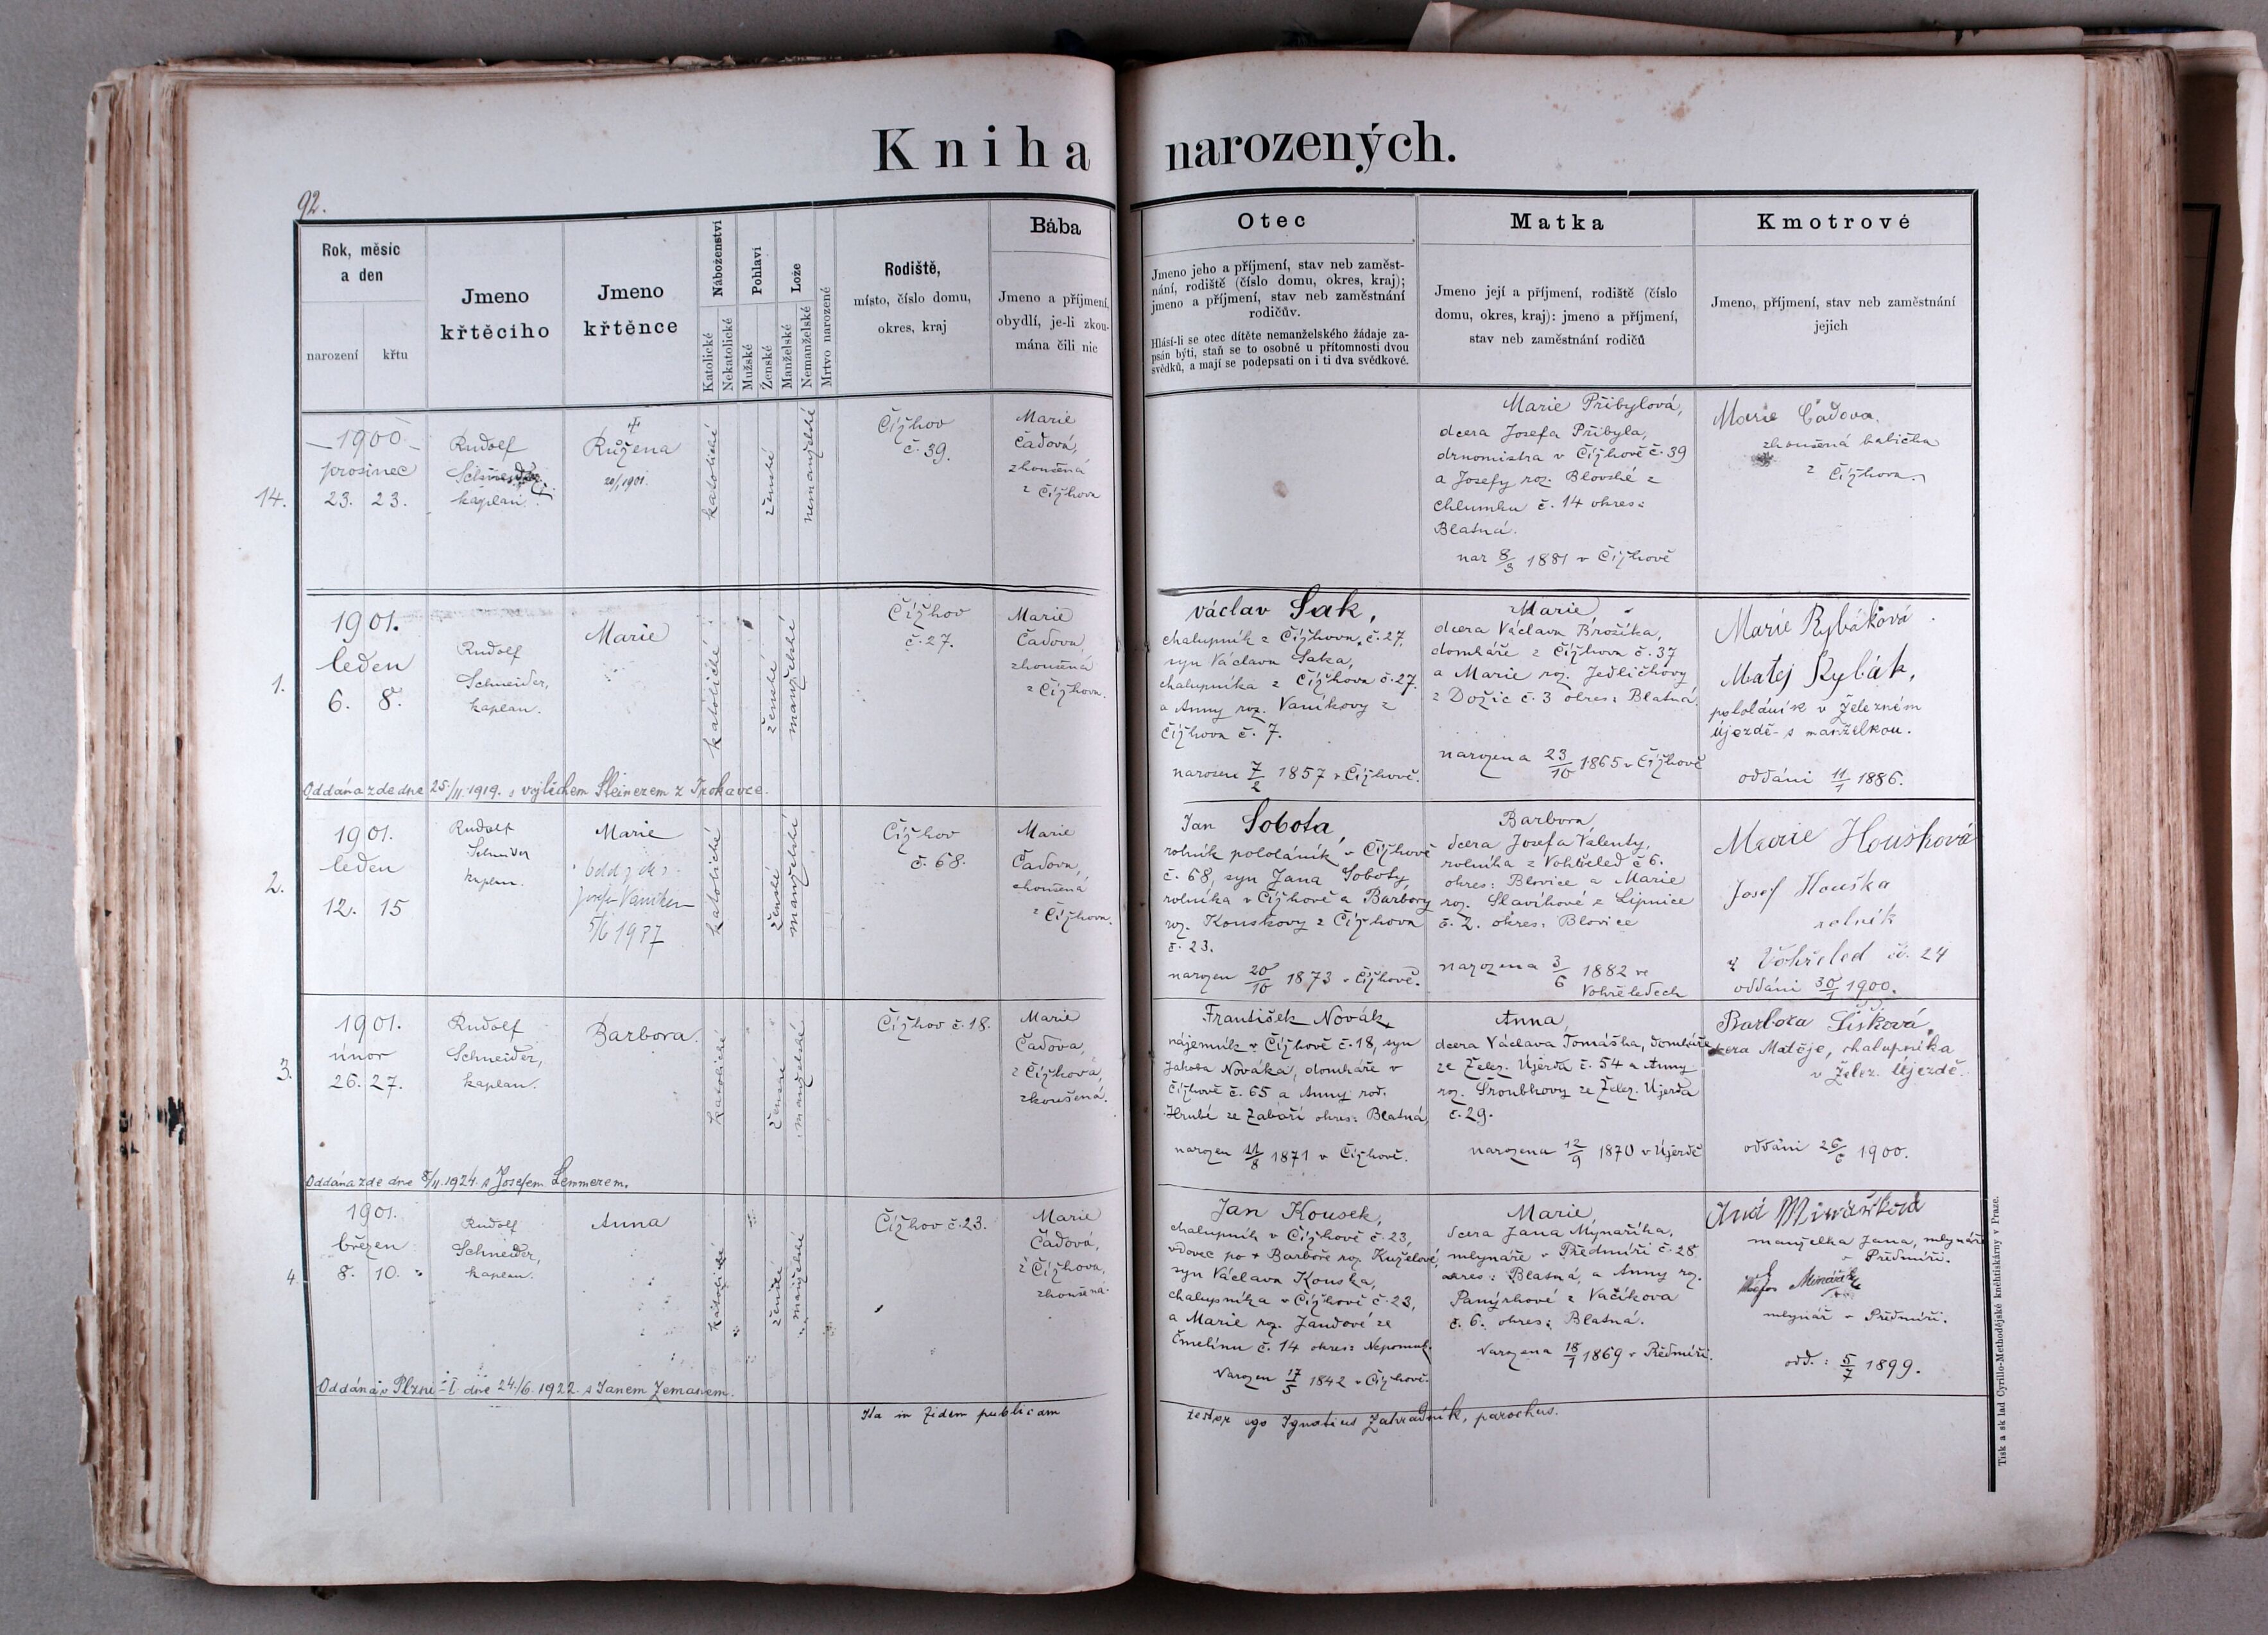 Kniha narozených.
92.
Rok, měsíc
a den
narození křtu
Jmeno
křtěcího
Jmeno
křtěnce
Náboženství
Katolické
Nekatolické
Pohlaví
Mužské
Ženské
Lože
Manželské
Nemanželské
Mrtvo narozené
Rodiště,
místo, číslo domu,
okres, kraj
Bába
Jmeno a příjmení,
obydlí, je-li zkou-
mána čili nic
Otec
Jmeno jeho a příjmení, stav neb zaměst-
nání, rodiště (číslo domu, okres, kraj);
jmeno a příjmení, stav neb zaměstnání
rodičův.
Hlásí-li se otec dítěte nemanželského žádaje za-
psán býti, staň se to osobně u přítomnosti dvou
svědků, a mají se podepsati on i ti dva svědkové.
Matka
Jmeno její a příjmení, rodiště (číslo
domu, okres, kraj): jmeno a příjmení,
stav neb zaměstnání rodičů
Kmotrové
Jmeno, příjmení, stav neb zaměstnání
jejich
14.
1900
prosinec
23. 23.
Rudolf
Schneider
kaplan.
Růžena
20/1 1901.
katolické
ženské
nemanželské
Čížkov
č. 39.
Marie
Čadová,
zkoušená
z Čížkova
Marie Přibylová,
dcera Josefa Přibyla,
drnomistra v Čížkově č. 39
a Josefy roz. Blovské z
Chlumku č. 14 okres:
Blatná.
nar 8/3 1881 v Čížkově
Marie Čadova.
zkoušená babička
z Čížkova.
1.
1901.
leden
6. 8.
Rudolf
Schneider,
kaplan.
Marie
katolické
ženské
manželské
Čížkov
č. 27.
Marie
Čadova,
zkoušená
z Čížkova.
Václav Sak,
chalupník z Čížkova č. 27,
syn Václava Saka,
chalupníka z Čížkova č. 27.
a Anny roz. Vaníkovy z
Čížkova č. 7.
narozen 7/2 1857 v Čížkově.
Marie
dcera Václava Brožíka,
domkáře z Čížkova č. 37
a Marie roz. Jedličkovy
z Dožic č. 3 okres: Blatná.
narozena 23/10 1865 v Čížkově
Marie Rybáková
Matěj Rybák,
pololáník v Železném
Újezdě s manželkou.
oddáni 11/1 1886.
Oddána zde dne 25./11. 1919. s Vojtěchem Steinerem z Trokavce.
2.
1901.
leden
12. 15
Rudolf
Schneider
kaplan.
Marie
5/6 1937
katolické
ženské
manželské
Čížkov
č. 68.
Marie
Čadova,
zkoušená
z Čížkova.
Jan Sobota,
rolník pololáník v Čížkově
č. 68, syn Jana Soboty,
rolníka v Čížkově a Barbory
roz. Kouskovy z Čížkova
č. 23.
narozen 20/10 1873 v Čížkově.
Barbora,
dcera Josefa Valenty,
rolníka z Vohřeled č 6.
okres: Blovice a Marie
roz. Slavíkové z Lipnice
č. 2. okres: Blovice
narozena 3/6 1882 ve
Vohřeledech
Marie Housková
Josef Houška
rolník
z Vohřeled č. 24
oddáni 30/1 1900.
3.
1901.
únor
26. 27.
Rudolf
Schneider,
kaplan.
Barbora.
katolické
ženské
manželské
Čížkov č. 18.
Marie
Čadova,
z Čížkova,
zkoušená.
František Novák,
nájemník v Čížkově č. 18, syn
Jakoba Nováka, domkáře v
Čížkově č. 65 a Anny roz.
Hrubé ze Zaboří okres: Blatná
narozen 11/8 1871 v Čížkově.
Anna,
dcera Václava Tomáška, domkáře
ze Želez. Újezda č. 54 a Anny
roz. Šroubkovy ze Želez. Újezda
č. 29.
narozena 12/9 1870 v Újezdě
Barbora Šisková,
dcera Matěje, chalupníka
v Želez. Újezdě.
oddáni 26/6 1900.
Oddána zde dne 8/11. 1924. s Josefem Lemmerem.
4.
1901.
březen
8. 10.
Rudolf
Schneider,
kaplan.
Anna
katolické
ženské
manželské
Čížkov č. 23.
Marie
Čadová,
z Čížkova,
zkoušená.
Jan Kousek,
chalupník v Čížkově č. 23,
vdovec po + Barboře roz. Kuželové,
syn Václava Kouska,
chalupníka v Čížkově č. 23,
a Marie roz. Jandové ze
Čmelínu č. 14 okres: Nepomuk.
Narozen 17/5 1842 v Čížkově.
Marie,
dcera Jana Mynaříka,
mlynáře v Předmíři č. 28
okres: Blatná, a Anny roz.
Panýrkové z Vačíkova
č. 6. okres: Blatná.
Narozena 18/1 1869 v Předmíři.
manželka Jana, mlynáře
v Předmíři.
mlynář v Předmíři.
odd.: 5/7 1899.
Oddána v Plzni I. dne 24./6. 1922. s Janem Zemanem.
Ita in fidem publicam testor ego Ignatius Zahradník, parochus.
Tisk a sklad Cyrillo-Methodějské knihtiskárny v Praze.